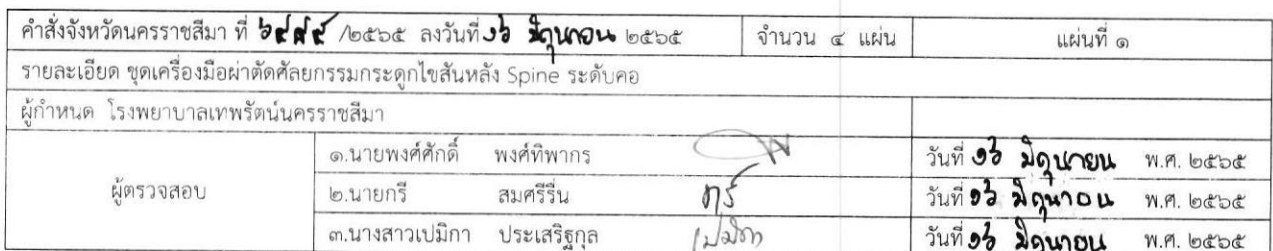 คำสั่งจังหวัดนครราชสีมา ที่ /๒๕๖๕ ลงวันที่ ๑๖ มิถุนายน ๒๕๖๕ จำนวน ๔ แผ่น แผ่นที่ ๑
รายละเอียด ชุดเครื่องมือผ่าตัดศัลยกรรมกระดูกไขสันหลัง Spine ระดับคอ
ผู้กำหนด โรงพยาบาลเทพรัตน์นครราชสีมา
ผู้ตรวจสอบ
๑.นายพงศ์ศักดิ์ พงศ์ทิพากร วันที่ ๑๖ มิถุนายน พ.ศ. ๒๕๖๕
๒.นายกรี สมศรีรื่น กรี วันที่ ๑๖ มิถุนายน พ.ศ. ๒๕๖๕
๓.นางสาวเปมิกา ประเสริฐกุล เปมิกา วันที่ ๑๖ มิถุนายน พ.ศ. ๒๕๖๕